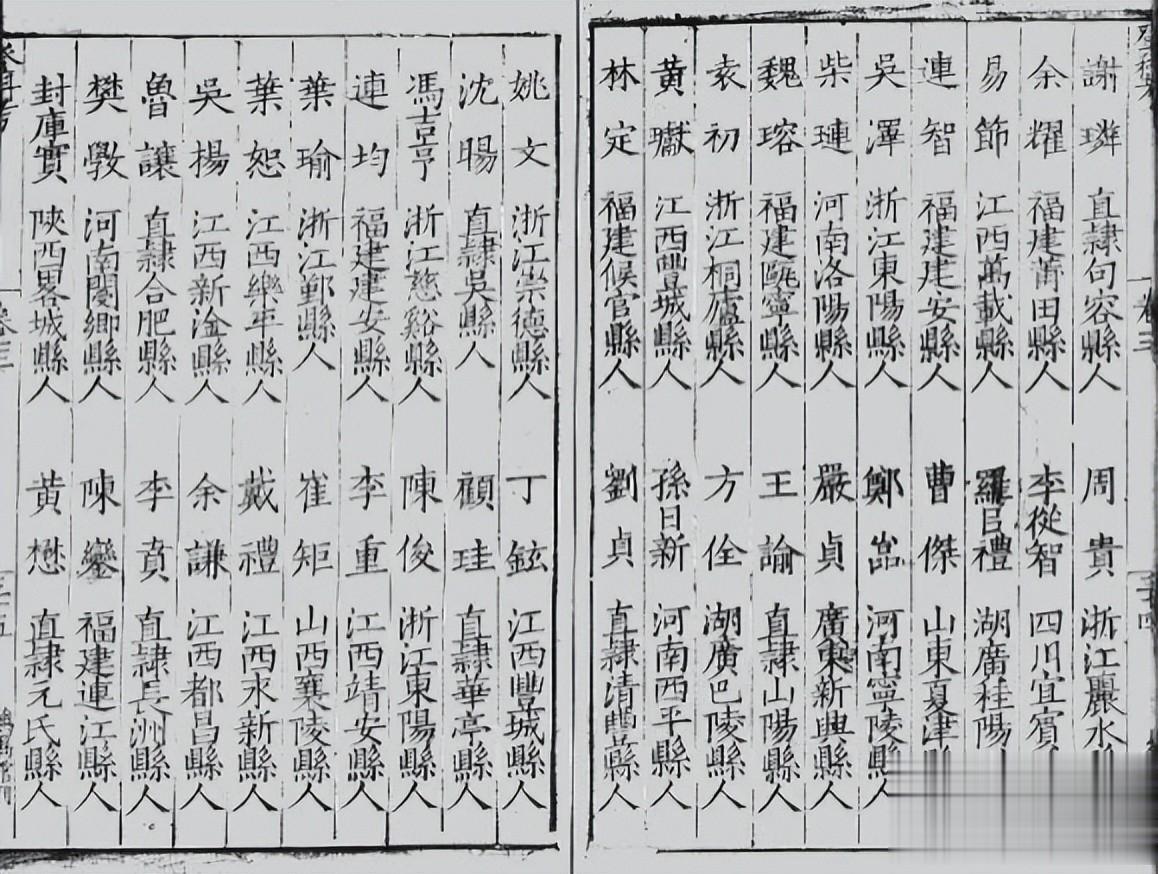 謝璘 直隷句容縣人 周貴 浙江麗水
余耀 福建莆田縣人 李從智 四川宜賓
易節 江西萬載縣人 羅 禮 湖廣桂陽
連智 福建建安縣人 曹傑 山東夏津
吳澤 浙江東陽縣人 鄭嵓 河南寧陵縣人
柴璉 河南洛陽縣人 嚴貞 廣東新興縣人
魏瑢 福建甌寧縣人 王諭 直隷山陽縣人
袁初 浙江桐廬縣人 方佺 湖廣巴陵縣人
黃瓛 江西豐城縣人 孫日新 河南西平縣人
林定 福建候官縣人 劉貞 直隷清豐縣人
姚文 浙江崇德縣人 丁鉉 江西豐城縣人
沈暘 直隷吳縣人 顧珪 直隷華亭縣人
馮吉亨 浙江慈谿縣人 陳俊 浙江東陽縣人
連均 福建建安縣人 李重 江西靖安縣人
葉瑜 浙江鄞縣人 崔矩 山西襄陵縣人
葉恕 江西樂平縣人 戴禮 江西永新縣人
吳揚 江西新淦縣人 余謙 江西都昌縣人
魯讓 直隷合肥縣人 李賁 直隷長洲縣人
樊斆 河南閿鄉縣人 陳鑾 福建連江縣人
封庫實 陝西畧城縣人 黃懋 直隷元氏縣人
卷三